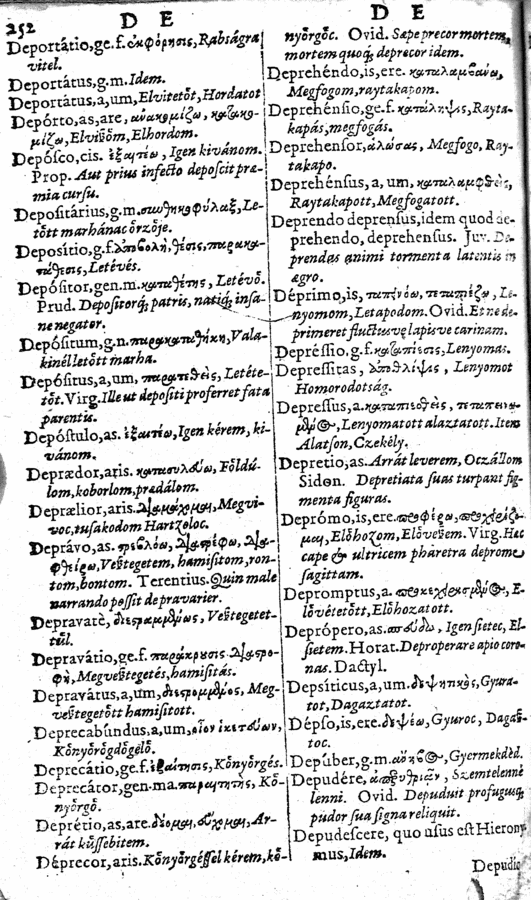 252
D E
Deportátio, ge. f. ἐκφόρησις, Rabságra
vitel.
Deportátus, g. m. Idem.
Deportátus, a, um, Elvitetőt, Hordatot
Depórto, as, are, ἀνακομίζω, κατακο-
μίζω, Elviβőm, Elhordom.
Depósco, cis. ἐξαιτέω, Igen kivánom.
Prop. Aut prius infecto deposcit præ-
mia cursu.
Depositárius, g. m. συνθηκοφύλαξ, Le-
tőtt marhánac őrzője.
Depositio, g. f. ἀποβολή, θέσις, παρακα-
τάθεσις, Letévés.
Depósitor, gen. m. καταθέτης, Letévő.
Prud. Depositorq́; patris, natiq́; insa-
ne negator.
Depósitum, g. n. παρακαταθήκη, Vala-
kinél letőtt marha.
Depósitus, a, um, παρατεθεὶς, Letéte-
tőt. Virg. Ille ut depositi proferret fata
parentis.
Depóstulo, as. ἐξαιτέω, Igen kérem, ki-
vánom.
Deprædor, aris. κατασυλάω, Főldú-
lom, koborlom, prædálom.
Deprælior, aris. διαμάχομαι, Megvi-
voc, tusakodom Hartzoloc.
Deprávo, as. στρεβλόω, διαστρέφω, δια-
φθείρω, Veβtegetem, hamisitom, ron-
tom, bontom. Terentius. Quin male
narrando possit depravarier.
Depravatè, διεστραμμένως, Veβtegetet-
tűl.
Depravátio, ge. f. παράκρουσις διαστρο-
φὴ, Megveβtegetés, hamisitás.
Depravátus, a, um, διεστραμμένος, Meg-
veβtegetőtt hamisitott.
Deprecabúndus, a, um, οἷον ἱκετεύων,
Kőnyőrőgdőgelő.
Deprecátio, ge. f. ἐξαίτησις, Kőnyőrgés.
Deprecátor, gen. ma. παραιτητὴς, Kő-
nyőrgő.
Deprétio, as, are. Ar-
rát kűssebitem.
Déprecor, aris. Kőnyőrgéssel kérem, kő-
D E
nyőrgőc. Ovid. Sæpe precor mortem,
mortem quoq́; deprecor idem.
Deprehéndo, is, ere. καταλαμβάνω,
Megfogom, raytakapom.
Deprehénsio, ge. f. κατάληψις, Rayta-
kapás, megfogás.
Deprehensor, ἁλώσας, Megfogo, Ray-
takapo.
Deprehénsus, a, um, καταλαμφθεὶς,
Raytakapott, Megfogatott.
Deprendo deprensus, idem quod de-
prehendo, deprehensus. Juv. De-
prendas animi tormenta latentis in
ægro.
Déprimo, is, ταπεινόω, Le-
nyomom, Letapodom. Ovid. Et ne de-
primeret fluctusve lapisve carinam.
Depréssio, g. f. κατάπιεσις, Lenyomas.
Depressitas, ἀπόθλιψις, Lenyomot
Homorodotság.
Depressus, a. καταπιεσθεὶς, τεταπεινω-
μένος, Lenyomatott alaztatott. Item
Alatson, Czekély.
Depretio, as. Arrát leverem, Oczállom
Sidon. Depretiata suas turpant fig-
menta figuras.
Deprómo, is, ere. προφέρω, προχειρίζο-
μαι, Előhozom, Elővéβem. Virg. Hæc
cape & ultricem pharetra deprome
sagittam.
Depromptus, a. προκεχειρισμένος, E-
lővétetőtt, Előhozatott.
Deprópero, as. σπεύδω, Igen sietec, El-
sietem. Horat. Deproperare apio coro-
nas. Dactyl.
Depsíticus, a, um. δεψητικὸς, Gyura-
tot, Dagaztatot.
Dépso, is, ere. δεψέω, Gyuroc, Dagaβ-
toc.
Depúber, g. m. Gyermekdéd.
Depudére, ἀπερυθριᾶν, Szemtelenné
lenni. Ovid. Depuduit profugusq́;
pudor sua signa reliquit.
Depudescere, quo usus est Hierony-
mus, Idem.
Depudic